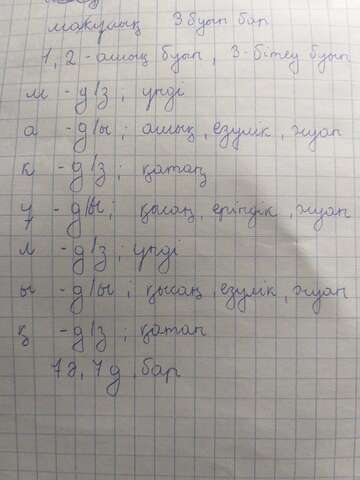 мақұлық 3 буын бар
1, 2 - ашық буын, 3 - бітеу буын
м - д/з; үнді
а - д/ы; ашық, езулік, жуан
к - д/з; қатаң
ұ - д/ы; қысаң, еріндік, жуан
л - д/з; үнді
ы - д/ы; қысаң, езулік, жуан
қ - д/з; қатаң
7 ә, 7 д бар